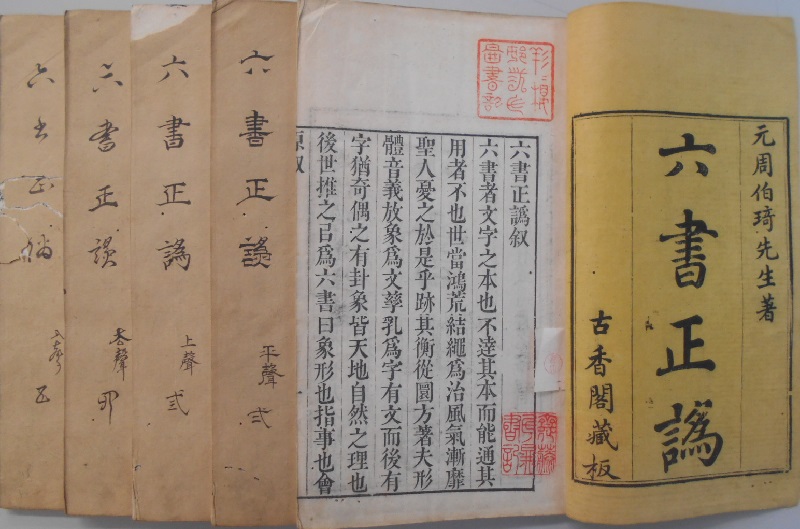 元周伯琦先生著
六書正譌
古香閣藏板
六書正譌叙
六書者文字之本也不達其本而能通其
用者不也世當鴻荒結繩爲治風氣漸靡
聖人憂之於是乎跡其衡從圜方著夫形
體音義放象爲文孳乳爲字有文而後有
字猶奇偶之有封象皆天地自然之理也
後世推之㠯爲六書曰象形也指事也會
圖書記
書記
六書正譌
平聲 弍
六書正譌
上聲 弍
六書正譌
去聲
六书正譌
五